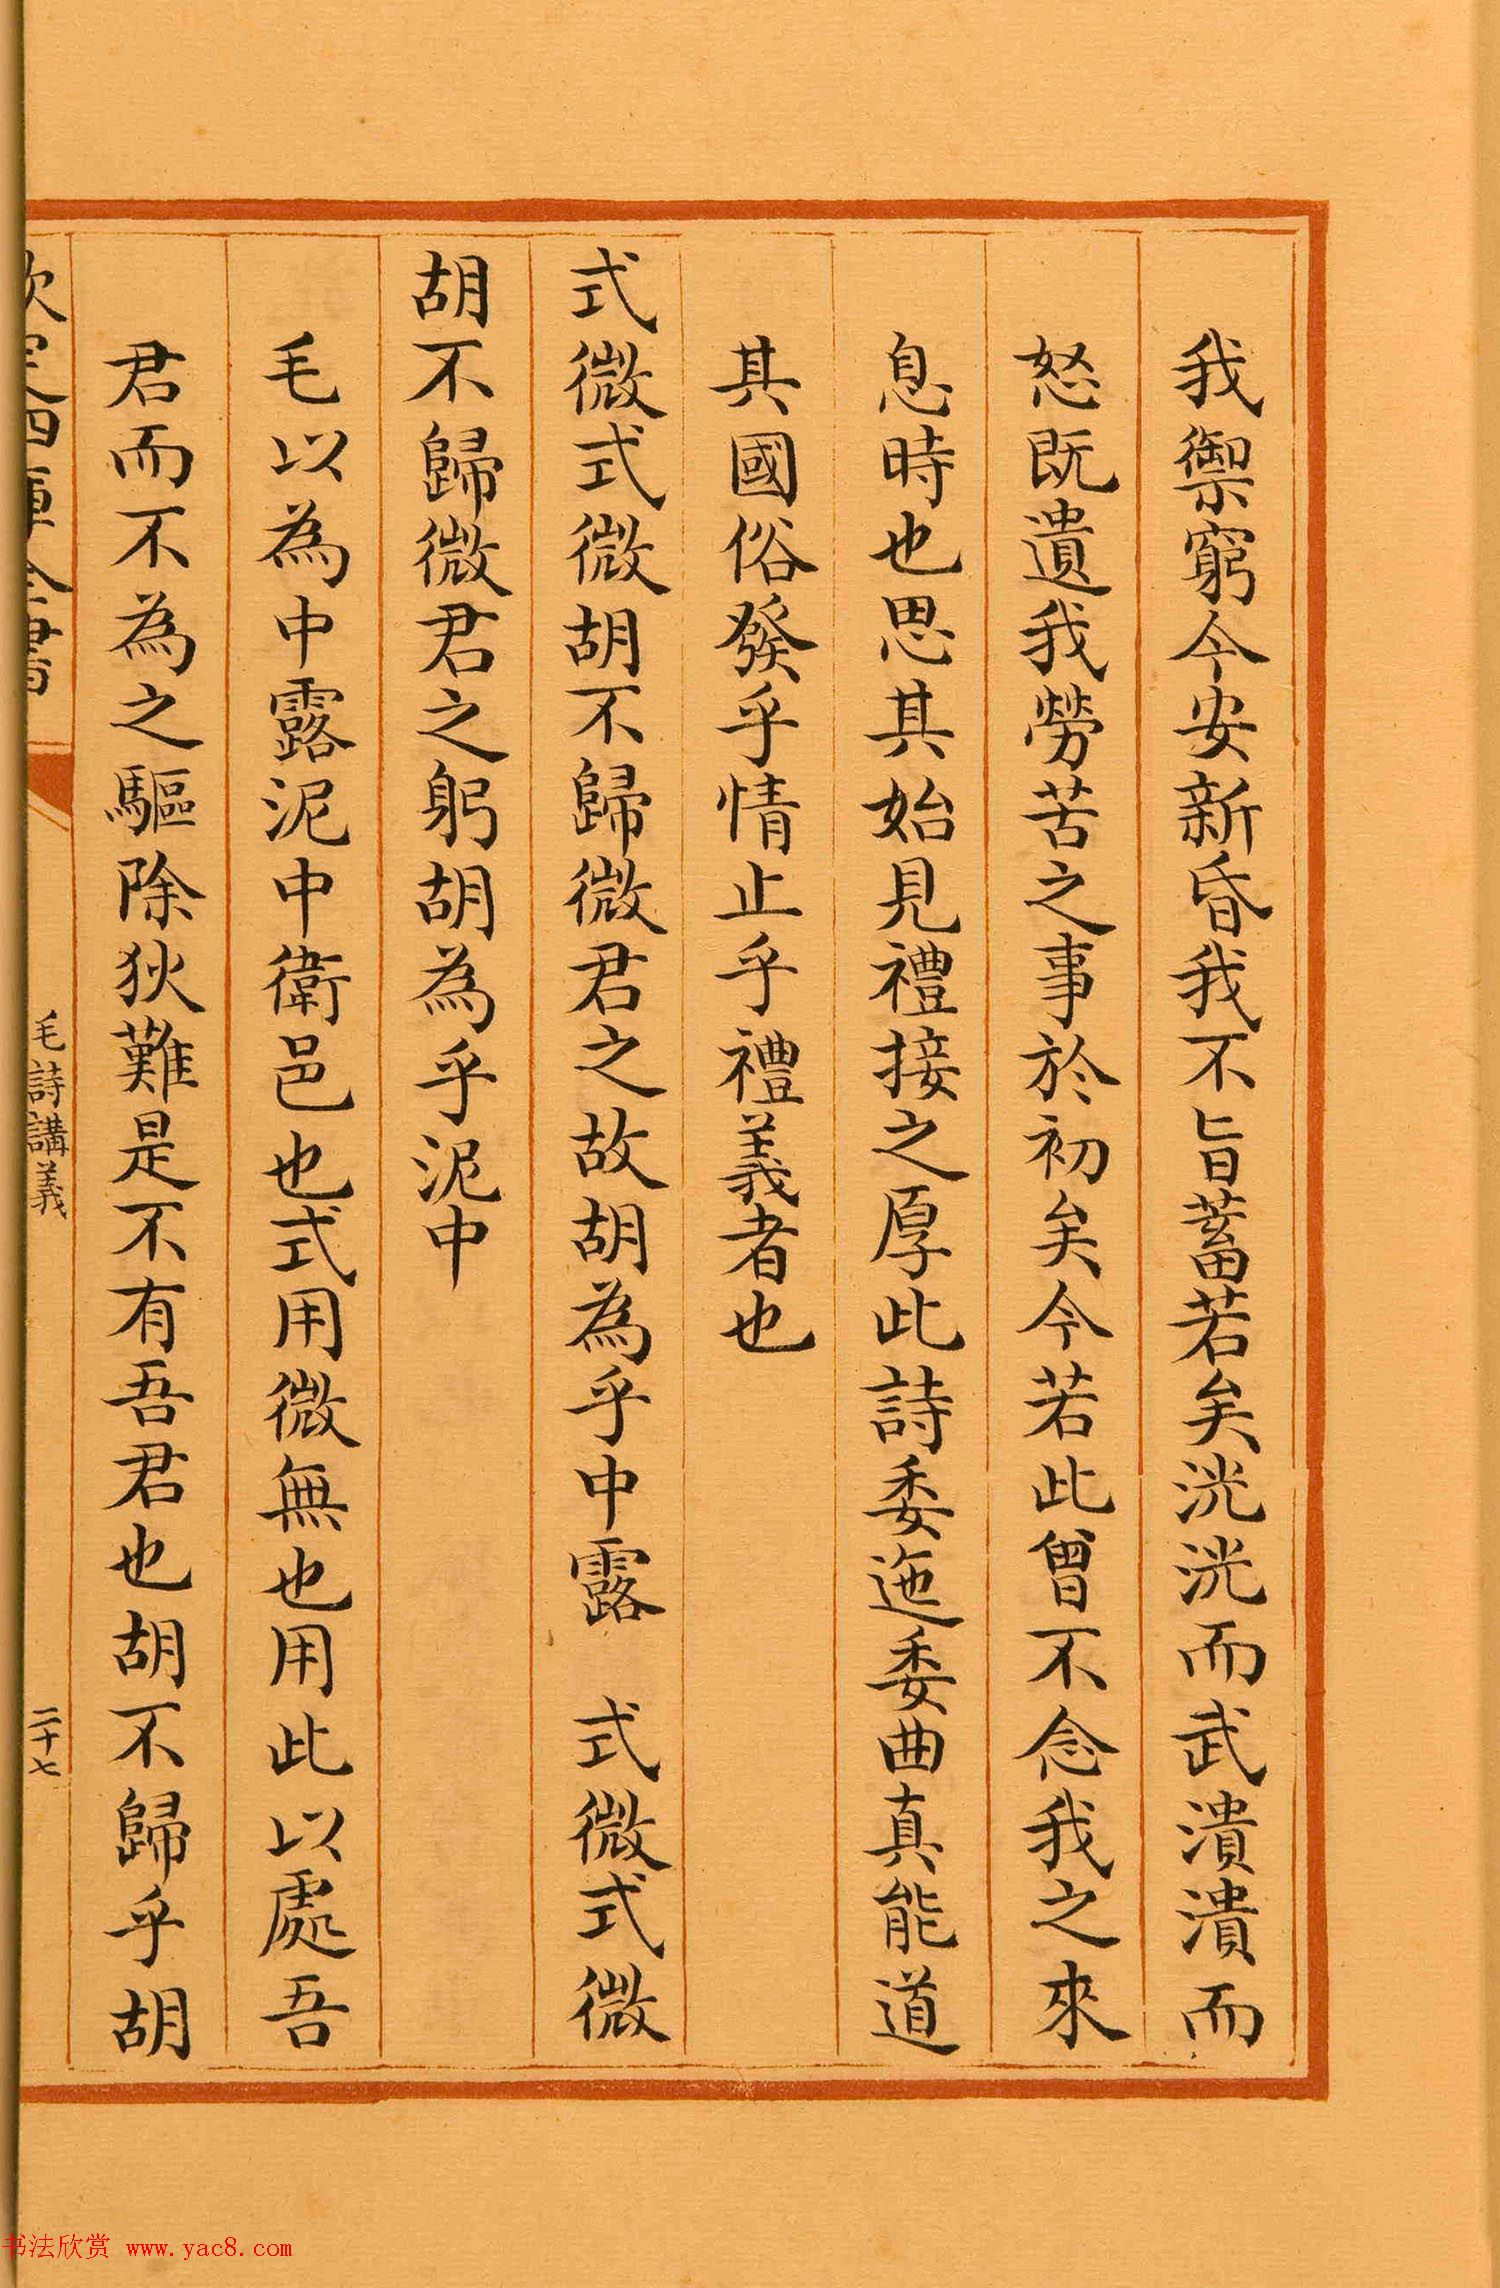 我禦窮今安新昏我不旨蓄若矣洸洸而武潰潰而
怒既遺我勞苦之事於初矣今若此曾不念我之來
息時也思其始見禮接之厚此詩委迤委曲真能道
其國俗發乎情止乎禮義者也
式微式微胡不歸微君之故胡為乎中露　式微式微
胡不歸微君之躬胡為乎泥中
毛以為中露泥中衛邑也式用微無也用此以處吾
君而不為之驅除狄難是不有吾君也胡不歸乎胡
欽定四庫全書
毛詩講義
二十七
书法欣赏 www.yac8.com